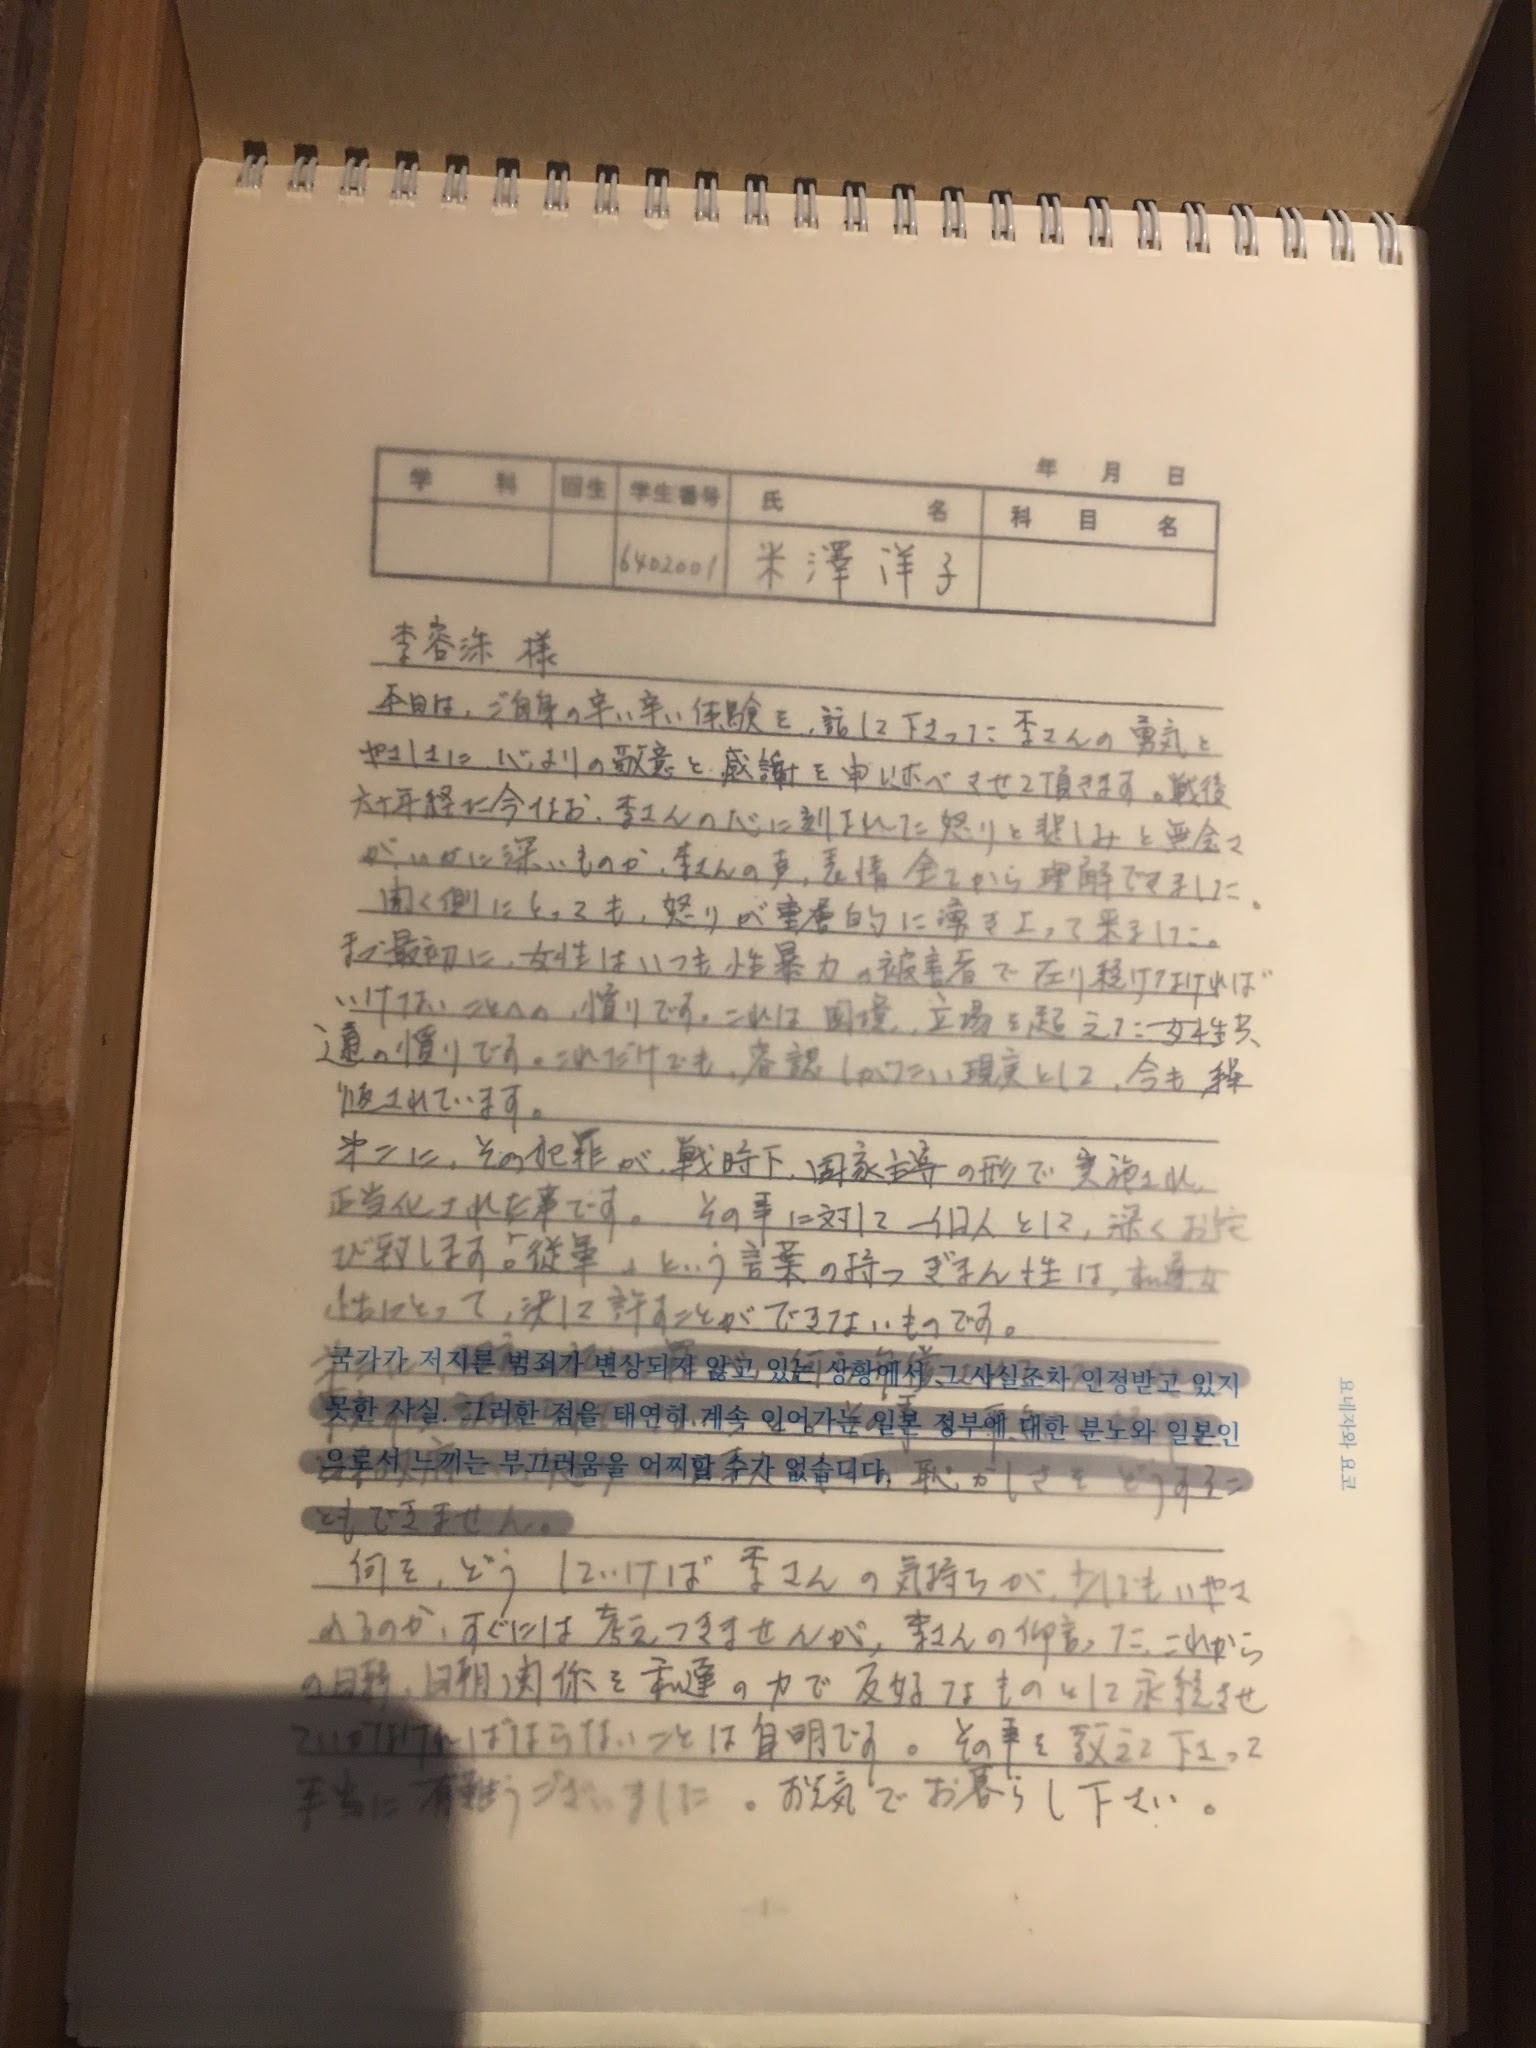 年 月 日
学 科 回生 学生番号 氏 名 科 目 名
6402001 米澤洋子
李容洙 様
本日は、ご自身の辛い辛い体験を、話して下さった李さんの勇気と
やさしさに、心よりの敬意と感謝を申し述べさせて頂きます。戦後
六十年経た今なお、李さんの心に刻まれた怒りと悲しみと無念さ
がいかに深いものか、李さんの声、表情全てから理解できました。
聞く側にとっても、怒りが重層的に湧き上って来ました。
まず最初に、女性はいつも性暴力の被害者で在り続けなければ
いけないことへの、憤りです。これは国境、立場を超えた女性共
通の憤りです。これだけでも、容認しがたい現実として、今も繰
り返されています。
第二に、その犯罪が、戦時下、国家主導の形で実施され、
正当化された事です。その事に対して一日本人として、深くお詫
び致します。「従軍」という言葉の持つぎまん性は、私達女
性にとって、決して許すことができないものです。
국가가 저지른 범죄가 변상되지 않고 있는 상황에서 그 사실조차 인정받고 있지
못한 사실. 그러한 점을 태연히 계속 이어가는 일본 정부에 대한 분노와 일본인
으로서 느끼는 부끄러움을 어찌할 수가 없습니다. 恥かしさをどうするこ
ともできません。
何を、どうしていけば李さんの気持ちが、少しでもいやさ
れるのか、すぐには考えつきませんが、李さんの仰言った、これから
の日韓、日朝関係を私達の力で友好なものとして永続させ
ていかなければならないことは自明です。その事を教えて下さって
本当に有難うございました。お元気でお暮らし下さい。
- 1 -
요네자와 요코